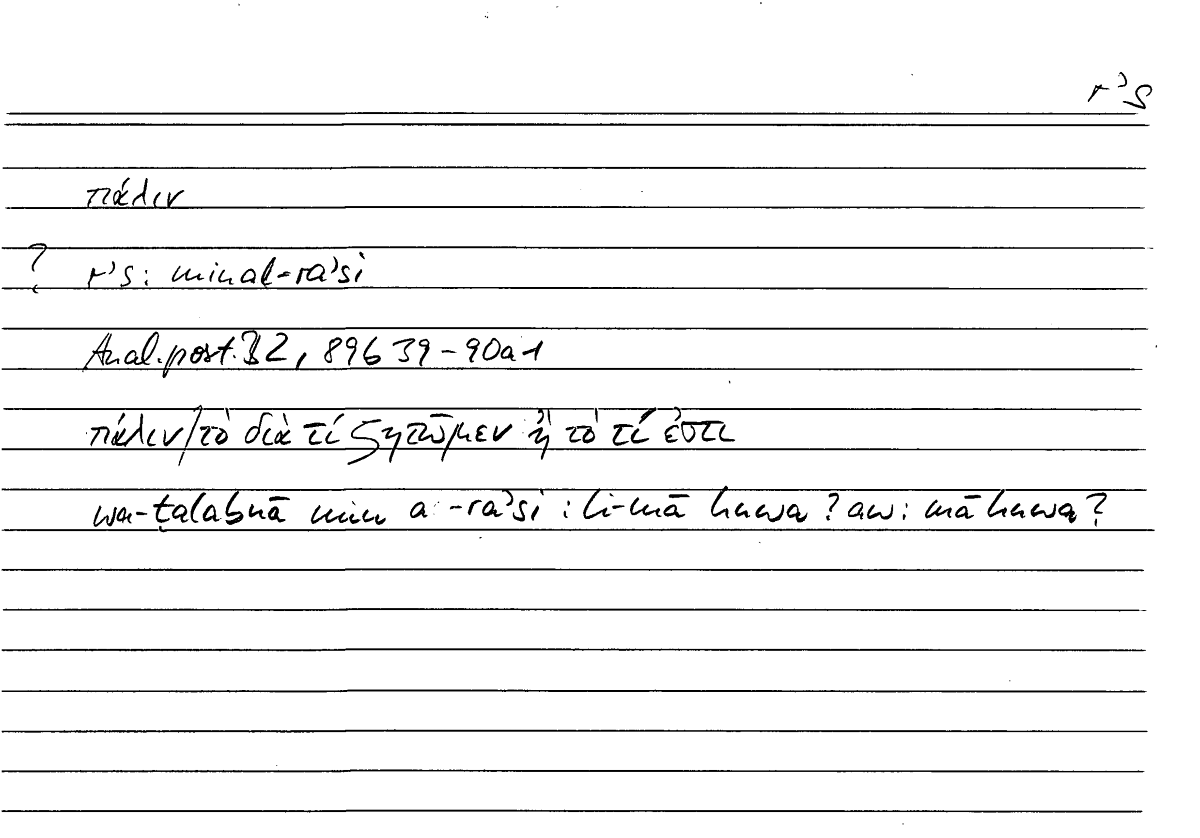 rʾs
πάλιν
? rʾs: min al-raʾsi
Anal. post. B2, 89b39-90a1
πάλιν/τὸ διὰ τί ζητῶμεν ἢ τὸ τί ἐστι
wa-ṭalabnā min a -raʾsi : li-mā huwa? aw: mā huwa?